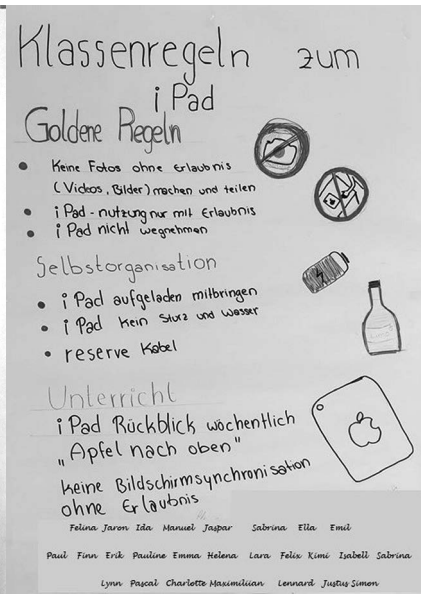 Klassenregeln zum
iPad
Goldene Regeln
• Keine Fotos ohne Erlaubnis
(Videos, Bilder) machen und teilen
• iPad-nutzung nur mit Erlaubnis
• iPad nicht wegnehmen
Selbstorganisation
• iPad aufgeladen mitbringen
• iPad kein Sturz und Wasser
• reserve Kabel
Unterricht
iPad Rückblick wöchentlich
„Apfel nach oben"
keine Bildschirmsynchronisation
ohne Erlaubnis
Felina Jaron Ida Manuel Jaspar Sabrina Ella Emil
Paul Finn Erik Pauline Emma Helena Lara Felix Kimi Isabell Sabrina
Lynn Pascal Charlotte Maximiliian Lennard Justus Simon